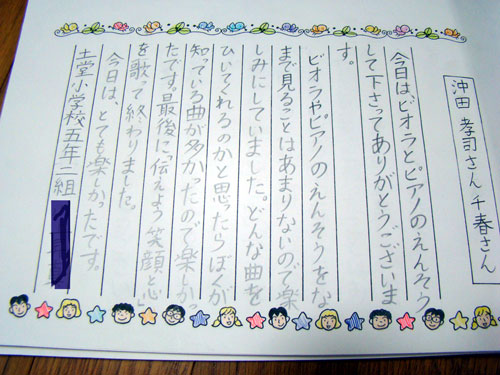 沖田孝司さん千春さん
今日はビオラとピアノのえんそう
して下さってありがとうございま
す。
ビオラやピアノのえんそうをな
まで見ることはあまりないので楽
しみにしていました。どんな曲を
ひいてくれるのかと思ったらぼくが
知っている曲が多かったので楽しかっ
たです。最後に「伝えよう笑顔と心」
を歌って終わりました。
今日は、とても楽しかったです。
土堂小学校五年二組